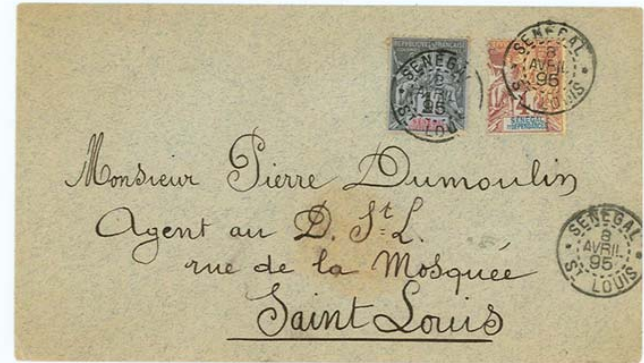 RÉPUBLIQUE FRANÇAISE
SÉNÉGAL
ET DÉPENDANCES
SENEGAL
8
AVRIL
95
ST LOUIS
SENEGAL
8
AVRIL
95
ST LOUIS
Monsieur Pierre Dumoulin
Agent au D. St. L.
rue de la Mosquée
Saint Louis
SENEGAL
8
AVRIL
95
ST LOUIS